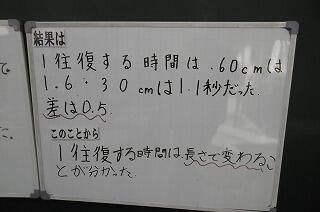 結果は
1往復する時間は.60cmは
1.6・30cmは1.1秒だった.
差は0.5.
このことから
1往復する時間は.長さで変わるこ
とが分かった.